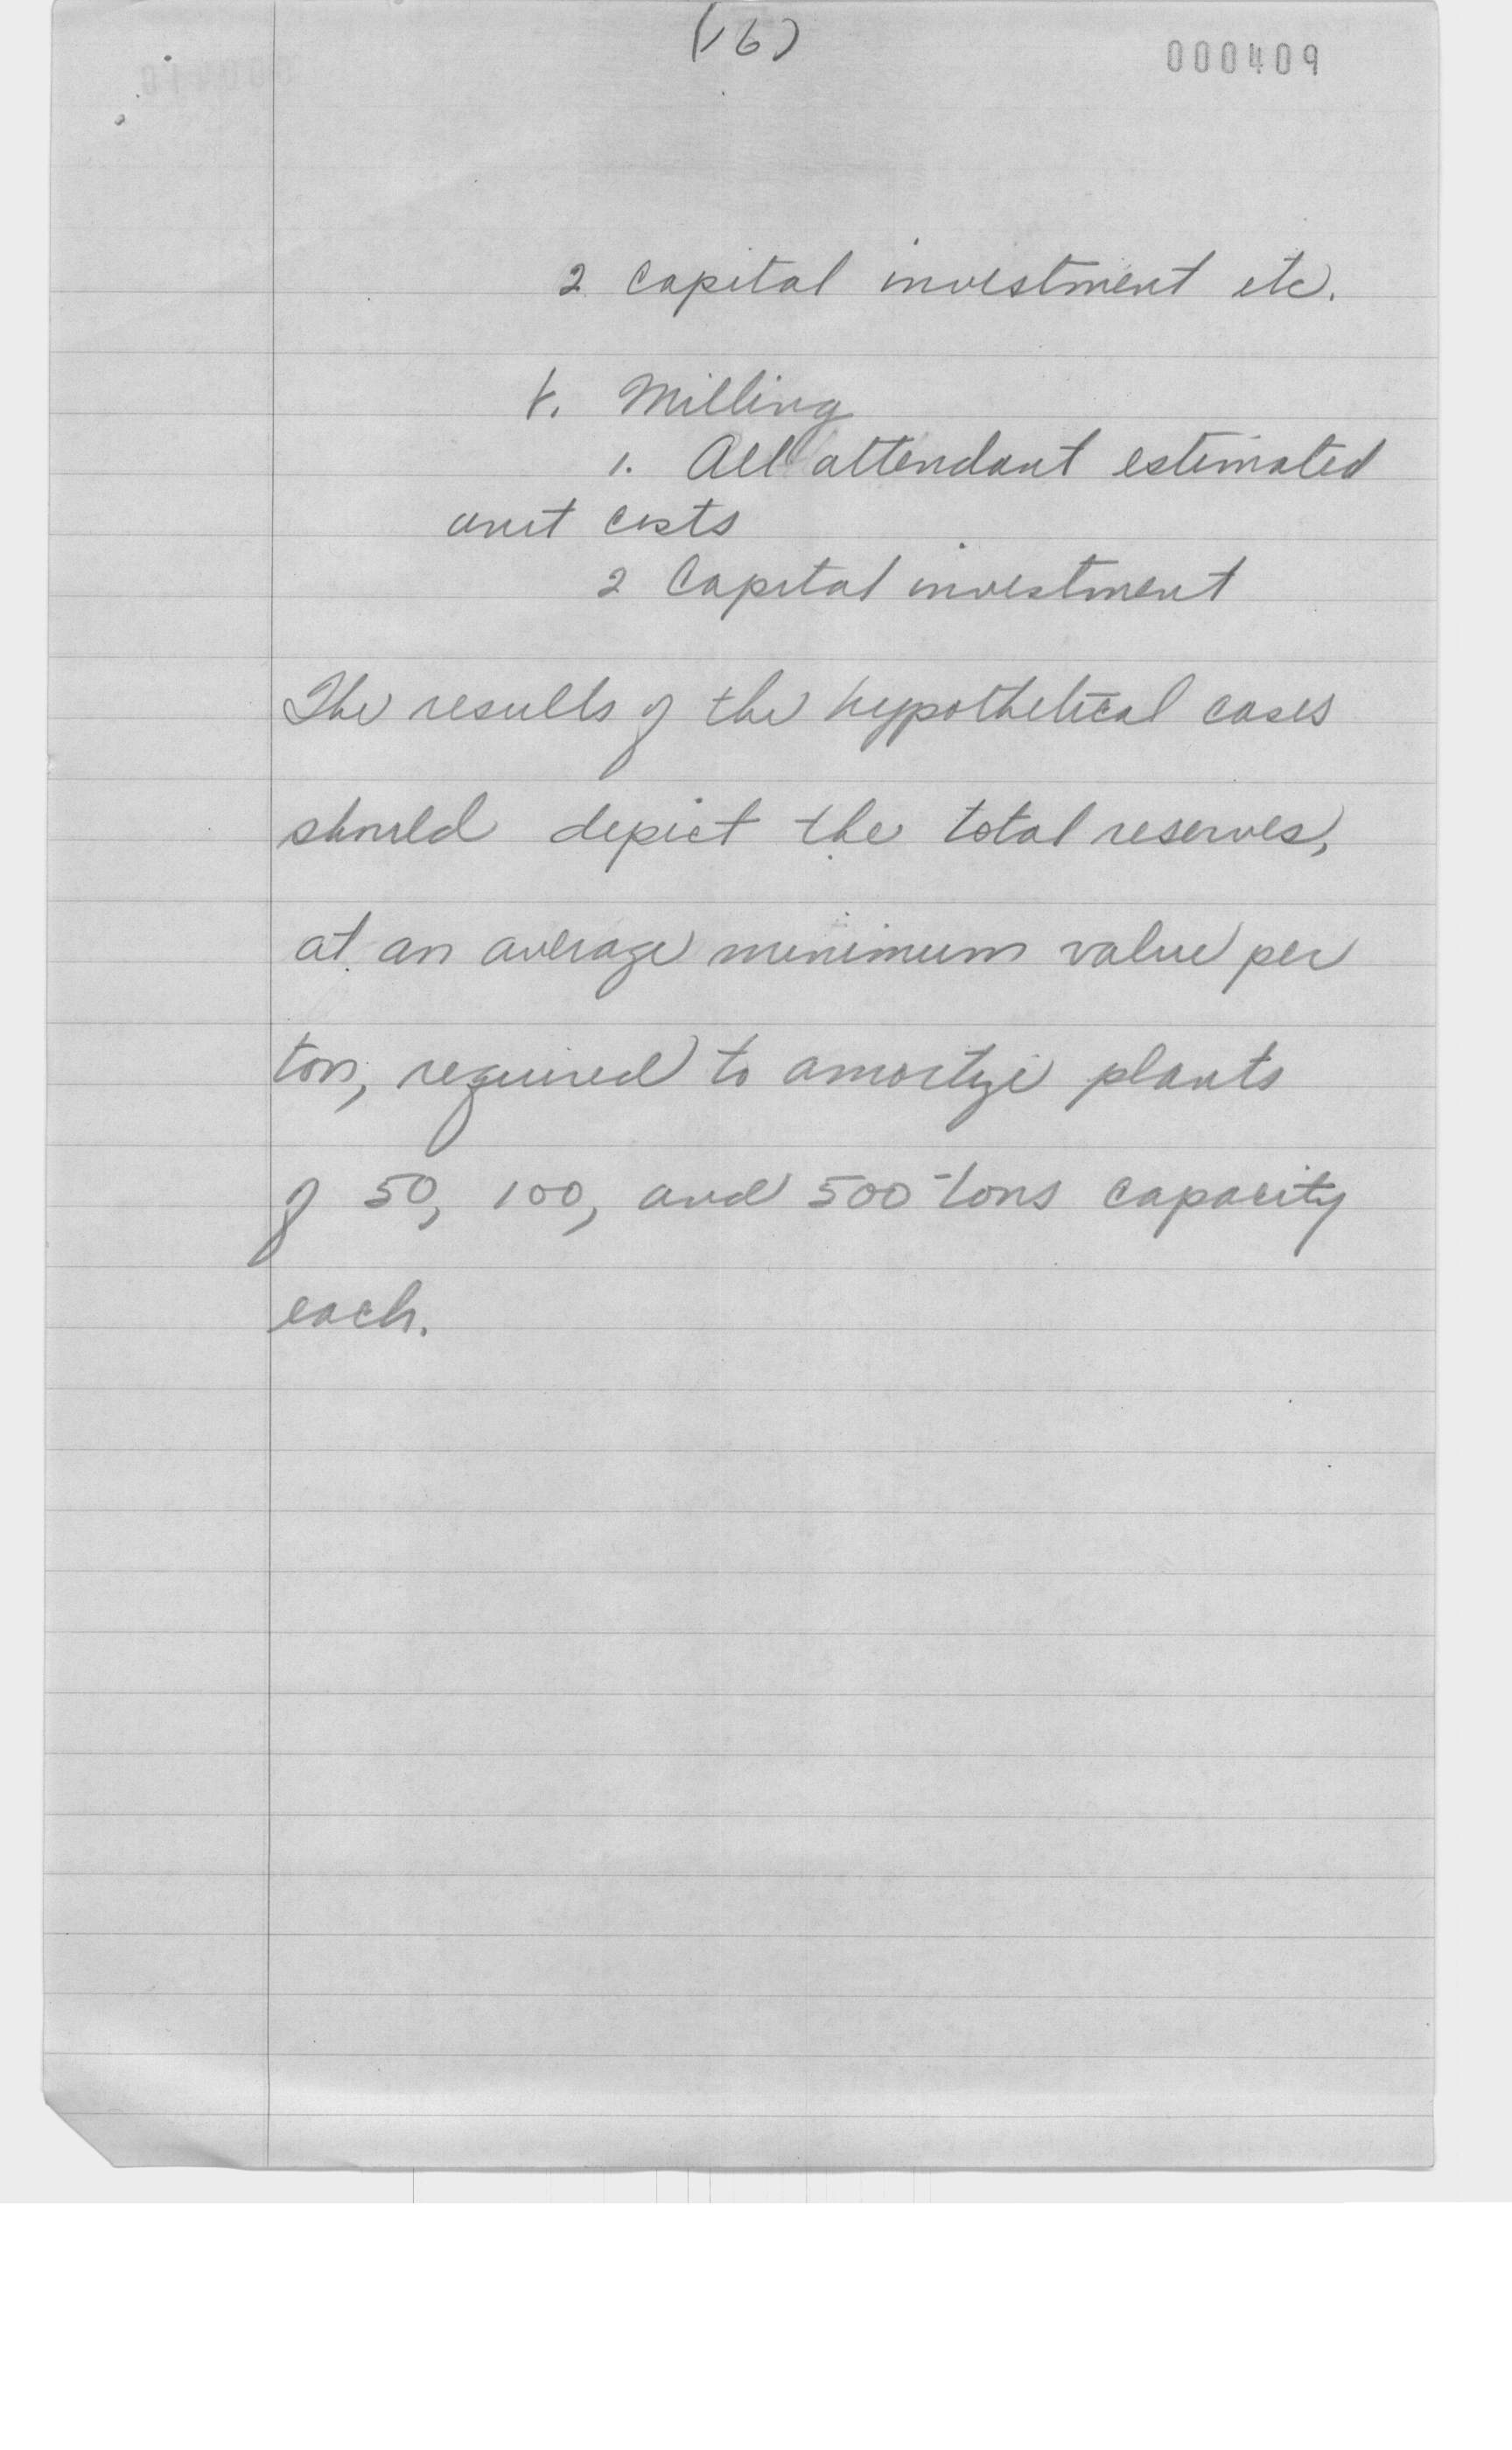 (16)
000409
2 Capital investment etc.
b. Milling
1. All attendant estimated
unit costs
2 Capital investment
The results of the hypothetical cases
should depict the total reserves,
at an average minimum value per
ton, required to amortize plants
of 50, 100, and 500 tons capacity
each.